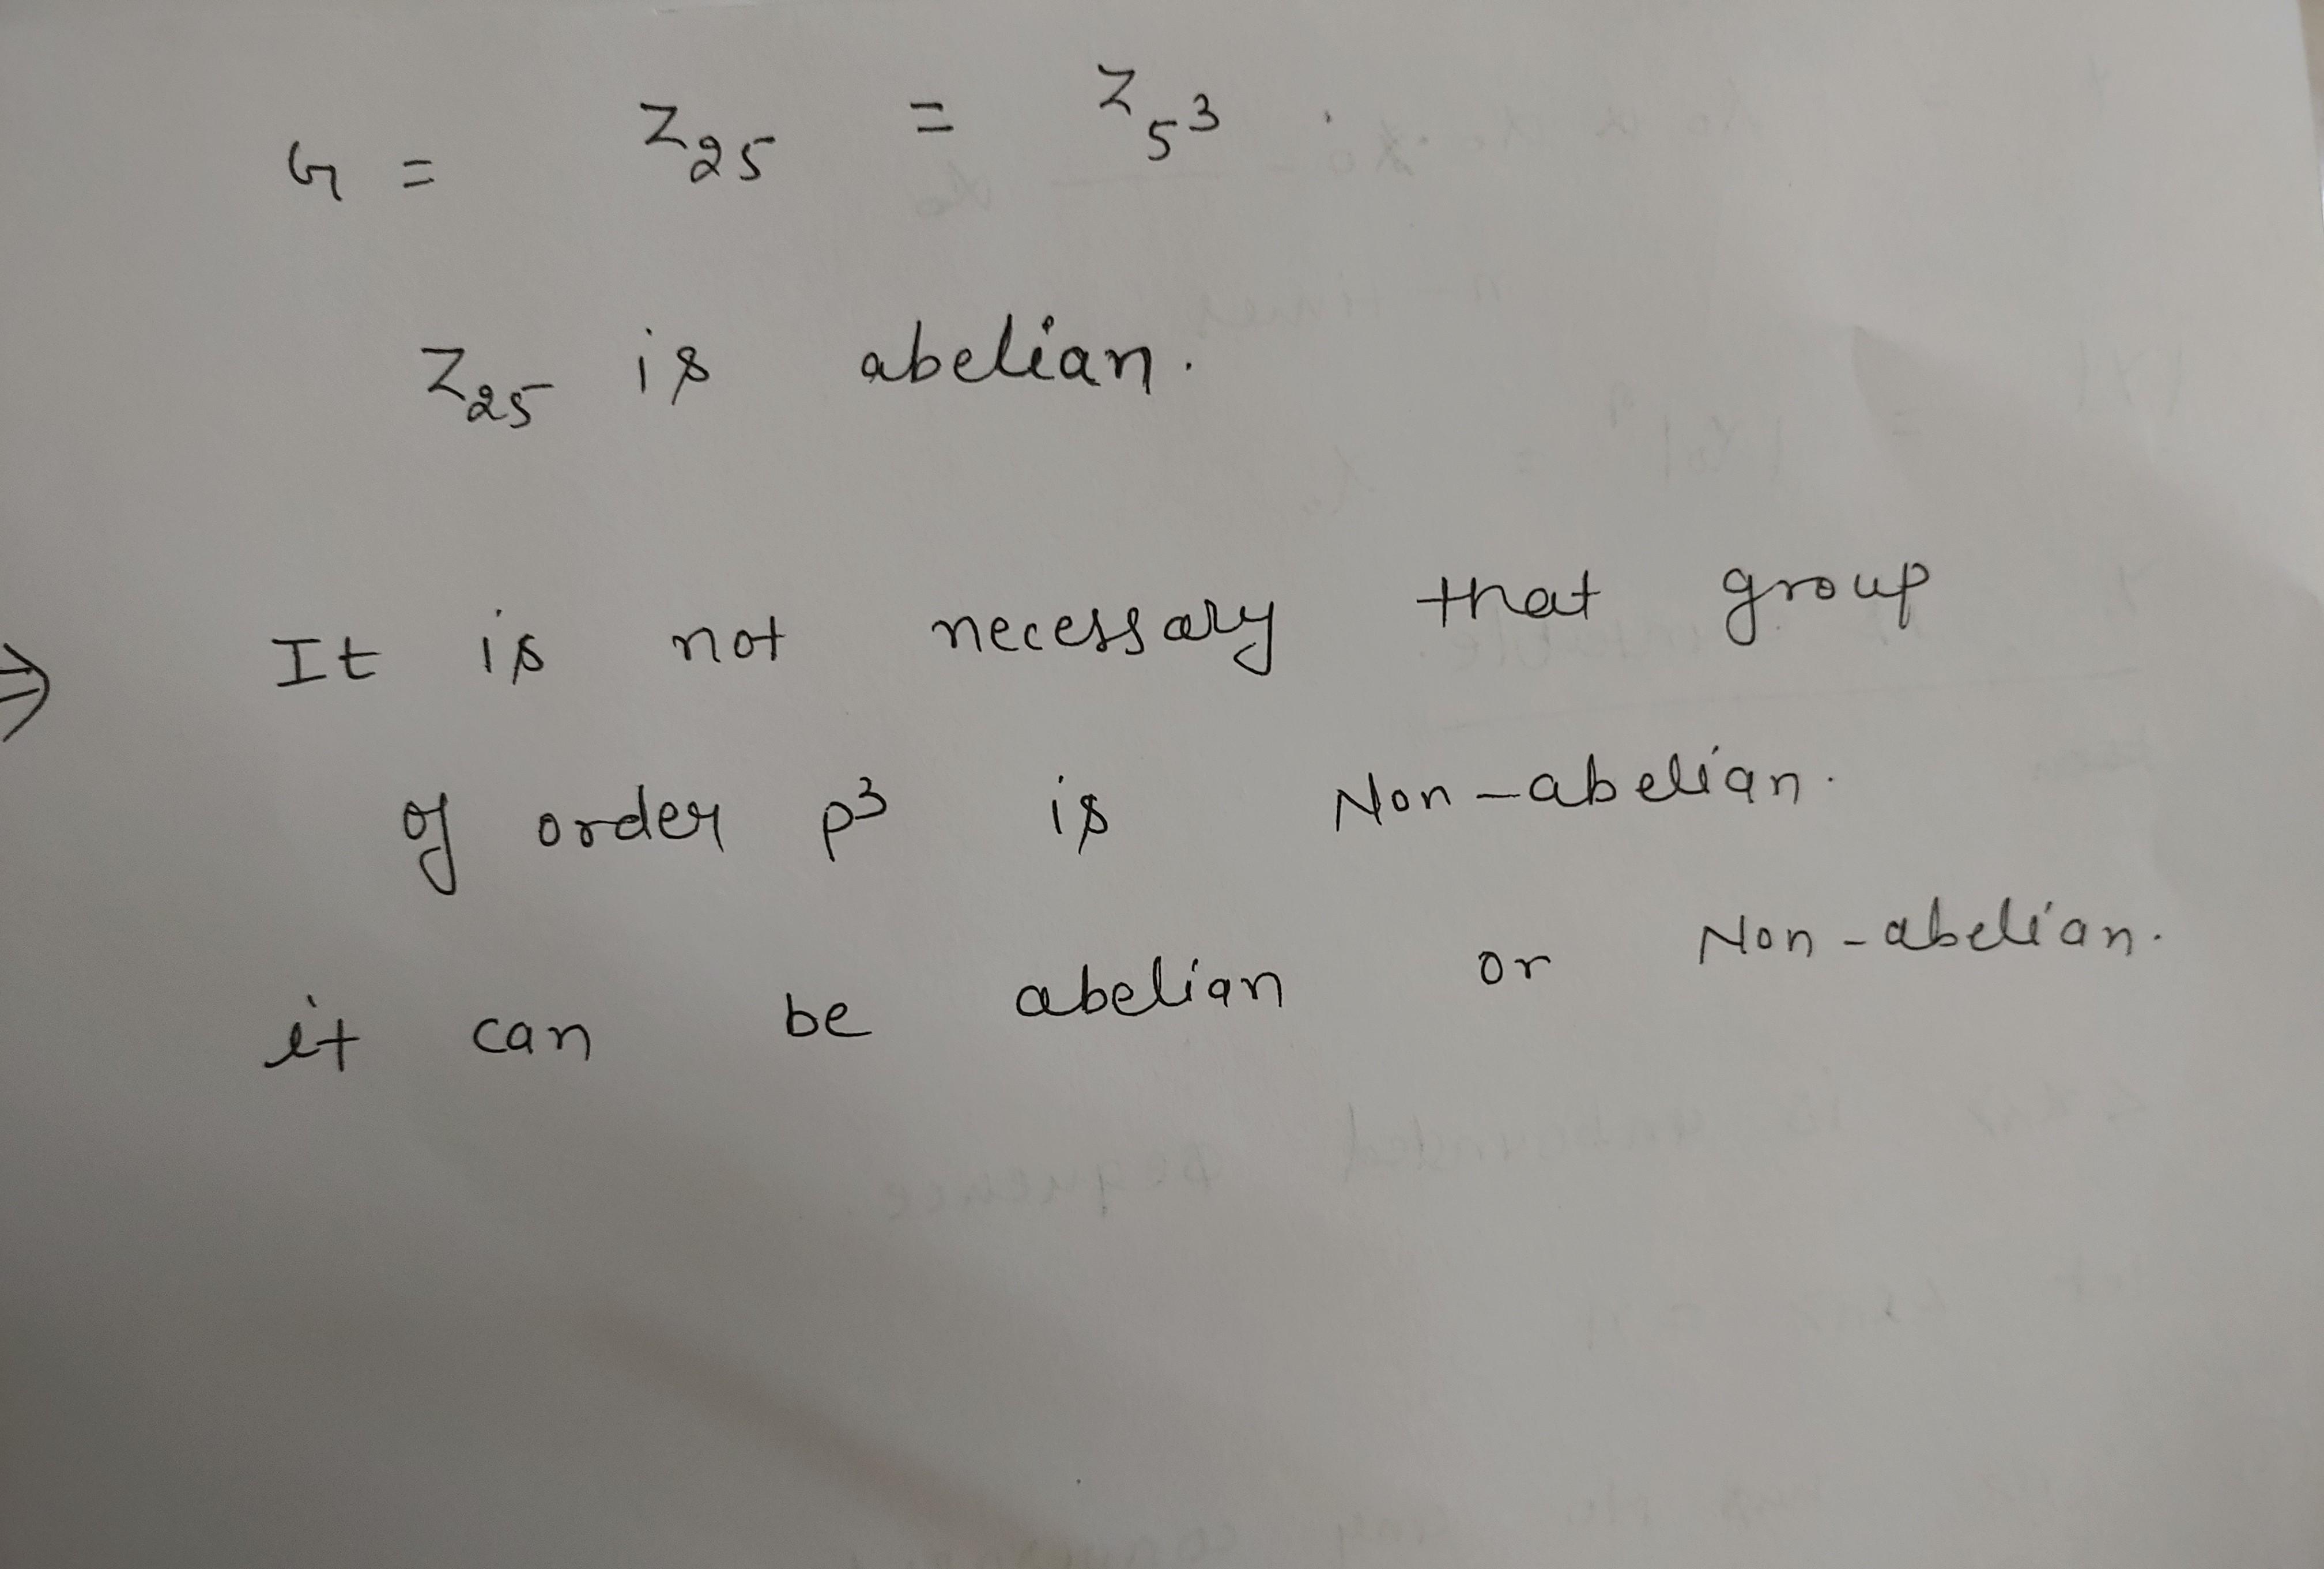 G = Z25 = Z5^3 .
Z25 is abelian.
⇒ It is not necessary that group
of order p^3 is Non-abelian.
it can be abelian or Non-abelian.